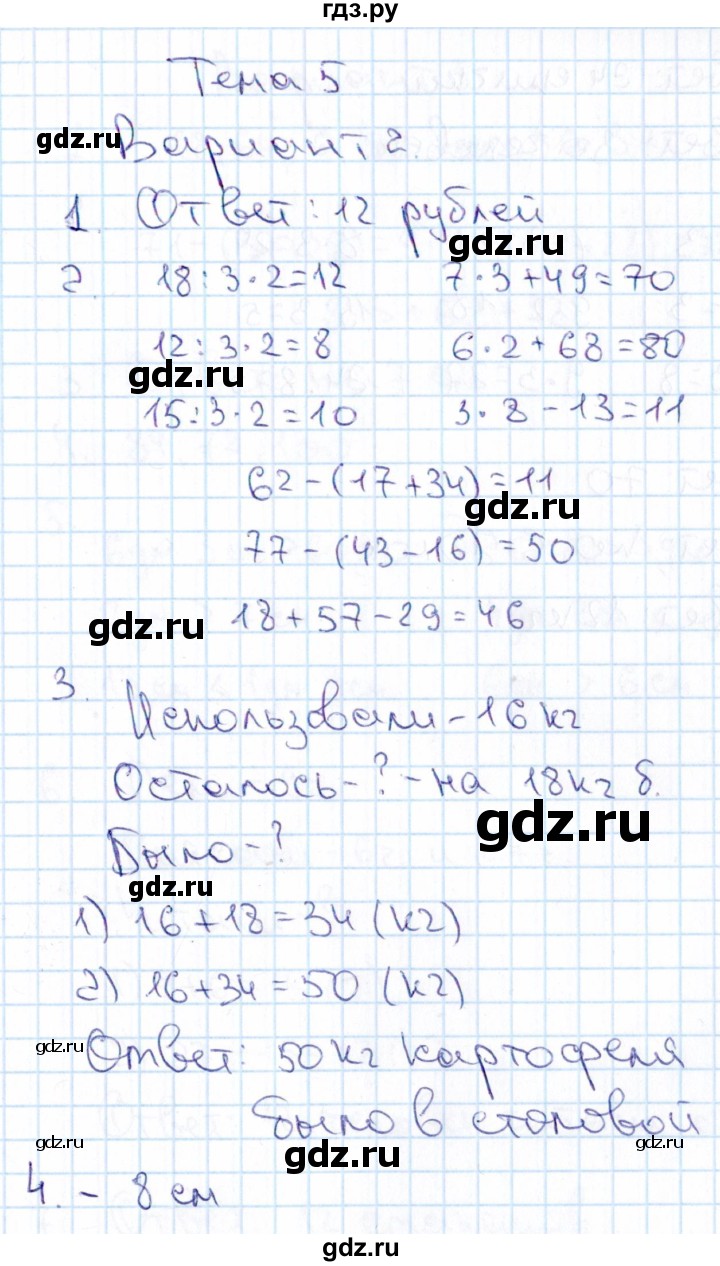 гдз.ру
Тема 5
gdz.ru
Вариант 2.
1. Ответ: 12 рублей
gdz.ru
2. 18:3·2=12 7·3+49=70
12:3·2=8 6·2+68=80
gdz.ru
15:3·2=10 3·8-13=11
62-(17+34)=11
gdz.ru
77-(43-16)=50
gdz.ru
18+57-29=46
3. Использовали-16кг
Осталось-?-на 18кг б.
gdz.ru
Было-?
gdz.ru
1) 16+18=34(кг)
2) 16+34=50(кг)
gdz.ru
Ответ: 50кг картофеля
gdz.ru
было в столовой
gdz.ru
gdz.ru
4. - 8 см
gdz.ru